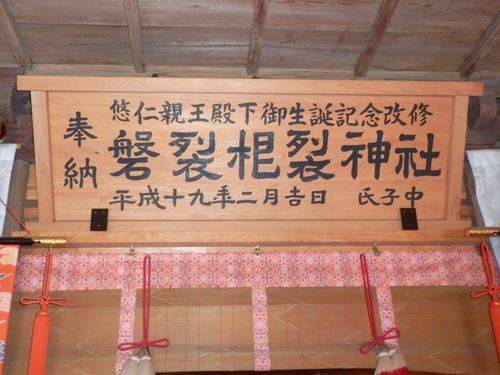 奉納
悠仁親王殿下御生誕記念改修
磐裂根裂神社
平成十九年二月吉日 氏子中